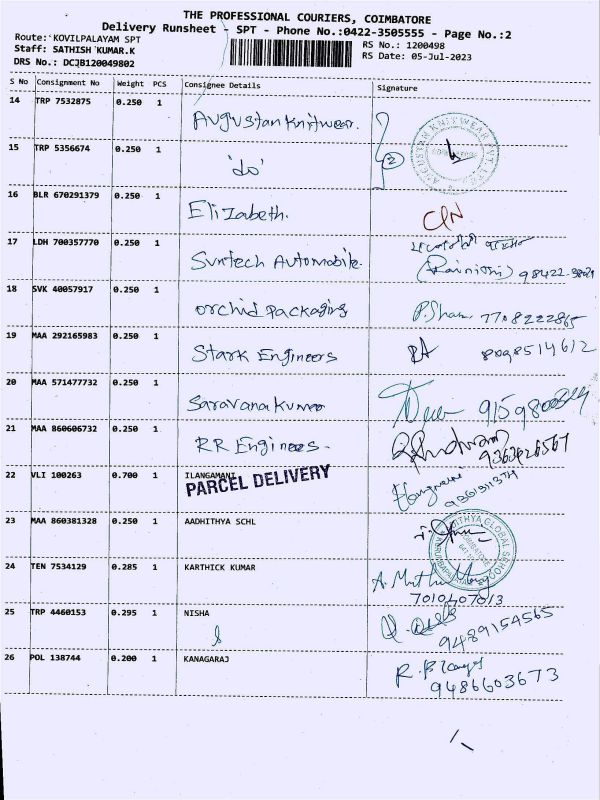 THE PROFESSIONAL COURIERS, COIMBATORE
Delivery Runsheet - SPT - Phone No.:0422-3505555 - Page No.:2
Route: KOVILPALAYAM SPT
RS No.: 1200498
Staff: SATHISH KUMAR.K
RS Date: 05-Jul-2023
DRS No.: DCJB120049802
S No Consignment No Weight PCS Consignee Details Signature
14 TRP 7532875 0.250 1 Augustan Knitwear.
15 TRP 5356674 0.250 1 'do' 2
16 BLR 670291379 0.250 1 Elizabeth.
17 LDH 700357770 0.250 1 Suntech Automobile.
18 SVK 40057917 0.250 1 orchid packaging P.Sham 7708222865
19 MAA 292165983 0.250 1 Stark Engineers 8098514612
20 MAA 571477732 0.250 1 Saravana Kumar
21 MAA 860606732 0.250 1 RR Engineers.
22 VLI 100263 0.700 1 ILANGAMANI
PARCEL DELIVERY
23 MAA 860381328 0.250 1 AADHITHYA SCHL
24 TEN 7534129 0.285 1 KARTHICK KUMAR
7010407013
25 TRP 4460153 0.295 1 NISHA
9489154565
26 POL 138744 0.200 1 KANAGARAJ
9486603673